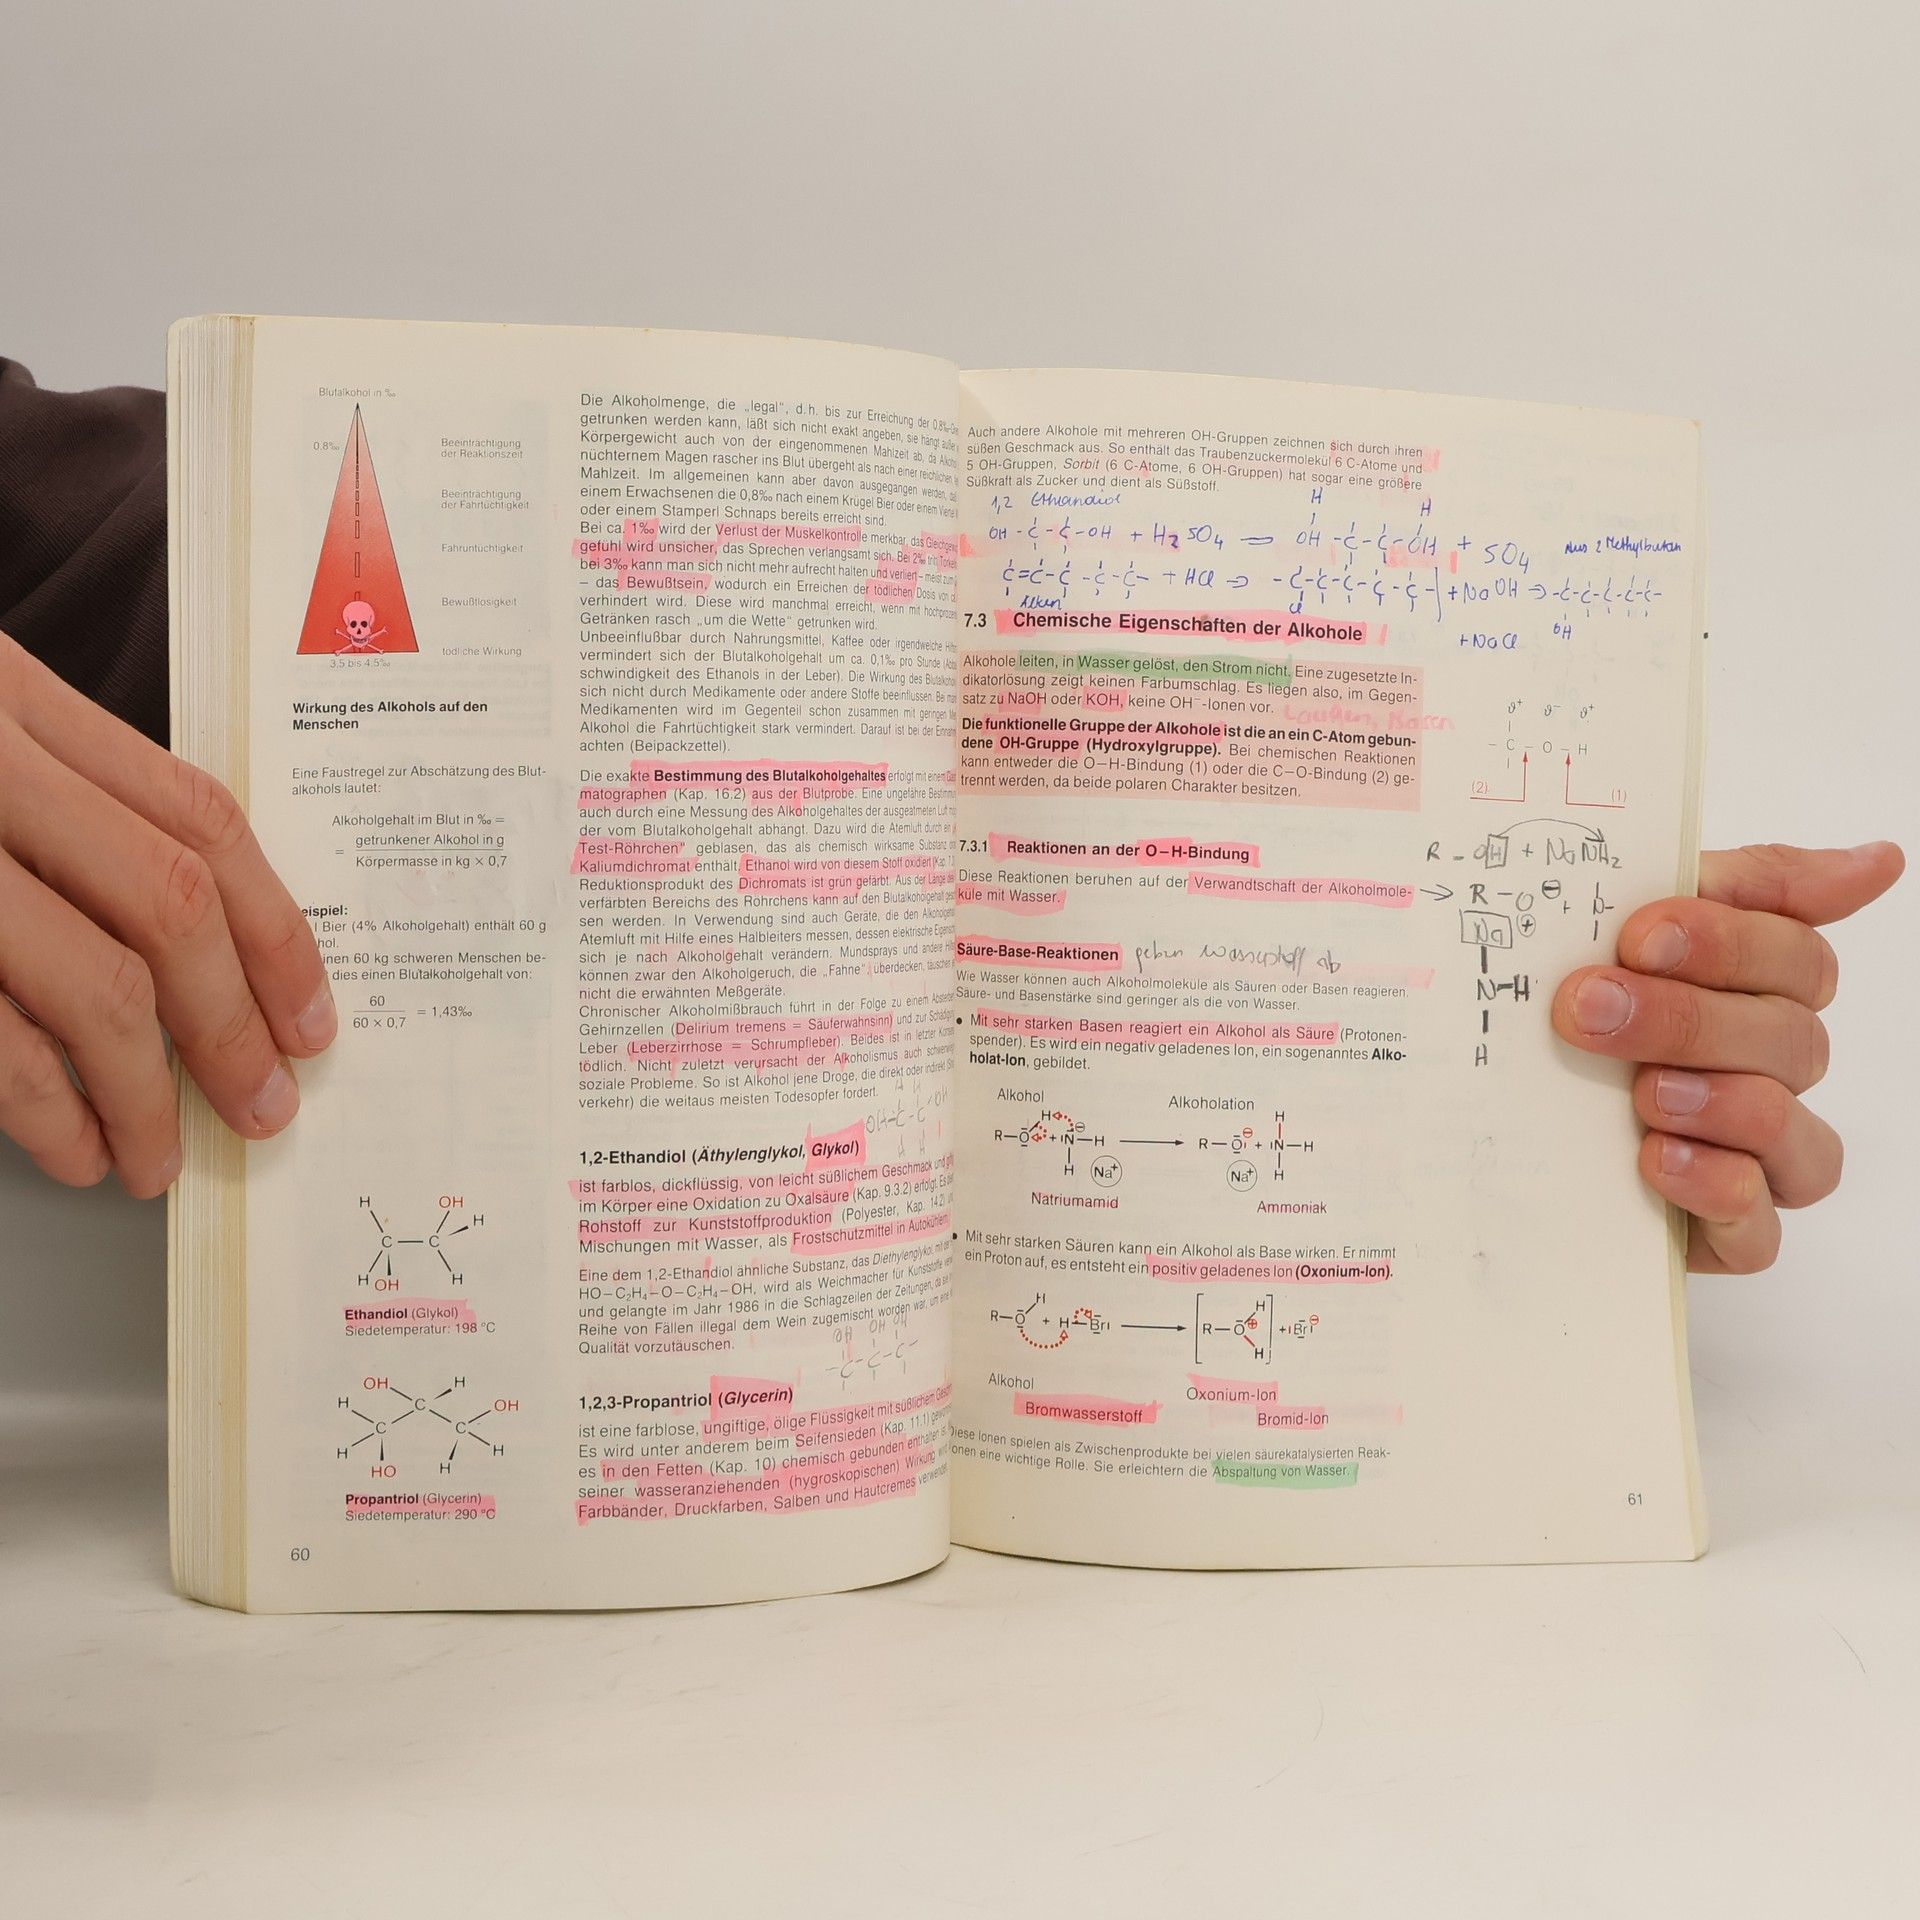 Blutalkohol in ‰
0,8‰
Beeinträchtigung
der Reaktionszeit
Beeinträchtigung
der Fahrtüchtigkeit
Fahruntüchtigkeit
Bewußtlosigkeit
tödliche Wirkung
3,5 bis 4,5‰
Wirkung des Alkohols auf den
Menschen
Eine Faustregel zur Abschätzung des Blut-
alkohols lautet:
Alkoholgehalt im Blut in ‰ =
= getrunkener Alkohol in g
Körpermasse in kg × 0,7
eispiel:
l Bier (4% Alkoholgehalt) enthält 60 g
hol.
inen 60 kg schweren Menschen be-
dies einen Blutalkoholgehalt von:
60
60 × 0,7 = 1,43‰
H OH
H
C — C
H OH H
Ethandiol (Glykol)
Siedetemperatur: 198 °C
OH H
H C OH
C C
H H
HO H
Propantriol (Glycerin)
Siedetemperatur: 290 °C
60
Die Alkoholmenge, die „legal“, d.h. bis zur Erreichung der 0,8‰
getrunken werden kann, läßt sich nicht exakt angeben, sie hängt
Körpergewicht auch von der eingenommenen Mahlzeit ab, da
nüchternem Magen rascher ins Blut übergeht als nach einer reichlichen
Mahlzeit. Im allgemeinen kann aber davon ausgegangen werden,
einem Erwachsenen die 0,8‰ nach einem Krügel Bier oder einem
oder einem Stamperl Schnaps bereits erreicht sind.
Bei ca. 1‰ wird der Verlust der Muskelkontrolle merkbar, das
gefühl wird unsicher, das Sprechen verlangsamt sich. Bei 2‰ tritt
bei 3‰ kann man sich nicht mehr aufrecht halten und verliert – meist
– das Bewußtsein, wodurch ein Erreichen der tödlichen Dosis von
verhindert wird. Diese wird manchmal erreicht, wenn mit
Getränken rasch „um die Wette“ getrunken wird.
Unbeeinflußbar durch Nahrungsmittel, Kaffee oder irgendwelche
vermindert sich der Blutalkoholgehalt um ca. 0,1‰ pro Stunde
schwindigkeit des Ethanols in der Leber). Die Wirkung des
sich nicht durch Medikamente oder andere Stoffe beeinflussen. Bei
Medikamenten wird im Gegenteil schon zusammen mit geringen
Alkohol die Fahrtüchtigkeit stark vermindert. Darauf ist bei der
achten (Beipackzettel).
Die exakte Bestimmung des Blutalkoholgehaltes erfolgt mit einem
matographen (Kap. 16.2) aus der Blutprobe. Eine ungefähre
auch durch eine Messung des Alkoholgehaltes der ausgeatmeten Luft
der vom Blutalkoholgehalt abhängt. Dazu wird die Atemluft durch ein
Test-Röhrchen“ geblasen, das als chemisch wirksame Substanz
Kaliumdichromat enthält. Ethanol wird von diesem Stoff oxidiert
Reduktionsprodukt des Dichromats ist grün gefärbt. Aus der Länge des
verfärbten Bereichs des Röhrchens kann auf den Blutalkoholgehalt
sen werden. In Verwendung sind auch Geräte, die den
Atemluft mit Hilfe eines Halbleiters messen, dessen elektrische
sich je nach Alkoholgehalt verändern. Mundsprays und andere
können zwar den Alkoholgeruch, die „Fahne“, überdecken, täuschen
nicht die erwähnten Meßgeräte.
Chronischer Alkoholmißbrauch führt in der Folge zu einem
Gehirnzellen (Delirium tremens = Säuferwahnsinn) und zur
Leber (Leberzirrhose = Schrumpfleber). Beides ist in letzter
tödlich. Nicht zuletzt verursacht der Alkoholismus auch
soziale Probleme. So ist Alkohol jene Droge, die direkt oder indirekt
verkehr) die weitaus meisten Todesopfer fordert.
1,2-Ethandiol (Äthylenglykol, Glykol)
ist farblos, dickflüssig, von leicht süßlichem Geschmack und
im Körper eine Oxidation zu Oxalsäure (Kap. 9.3.2) erfolgt.
Rohstoff zur Kunststoffproduktion (Polyester, Kap. 14.2)
Mischungen mit Wasser, als Frostschutzmittel in Autokühlern
Eine dem 1,2-Ethandiol ähnliche Substanz, das Diethylenglykol, mit
HO–C₂H₄–O–C₂H₄–OH, wird als Weichmacher für Kunststoffe
und gelangte im Jahr 1986 in die Schlagzeilen der Zeitungen, da
Reihe von Fällen illegal dem Wein zugemischt worden war, um
Qualität vorzutäuschen.
1,2,3-Propantriol (Glycerin)
ist eine farblose, ungiftige, ölige Flüssigkeit mit süßlichem
Es wird unter anderem beim Seifensieden (Kap. 11.1)
es in den Fetten (Kap. 10) chemisch gebunden enthalten
seiner wasseranziehenden (hygroskopischen) Wirkung wird
Farbbänder, Druckfarben, Salben und Hautcremes verwendet.
Auch andere Alkohole mit mehreren OH-Gruppen zeichnen sich durch ihren
süßen Geschmack aus. So enthält das Traubenzuckermolekül 6 C-Atome und
5 OH-Gruppen, Sorbit (6 C-Atome, 6 OH-Gruppen) hat sogar eine größere
Süßkraft als Zucker und dient als Süßstoff.
1,2 Ethandiol
H H
OH - C - C - OH + H₂SO₄ = OH - C - C - OH + SO₄
Aus 2 Methylbutan
C=C-C-C-C- + HCl ⇒ -C-C-C-C-C- + NaOH ⇒ -C-C-C-C-C-
Alken Cl OH
+ NaCl
7.3 Chemische Eigenschaften der Alkohole
Alkohole leiten, in Wasser gelöst, den Strom nicht. Eine zugesetzte In-
dikatorlösung zeigt keinen Farbumschlag. Es liegen also, im Gegen-
satz zu NaOH oder KOH, keine OH⁻-Ionen vor. Laugen, Basen
Die funktionelle Gruppe der Alkohole ist die an ein C-Atom gebun-
dene OH-Gruppe (Hydroxylgruppe). Bei chemischen Reaktionen
kann entweder die O–H-Bindung (1) oder die C–O-Bindung (2) ge-
trennt werden, da beide polaren Charakter besitzen.
ϑ⁺ ϑ⁻ ϑ⁺
– C – O – H
(2) (1)
7.3.1 Reaktionen an der O–H-Bindung
Diese Reaktionen beruhen auf der Verwandtschaft der Alkoholmole-
küle mit Wasser.
R - OH + NaNH₂
→ R - O⊖ +
Na ⊕
N-H
H
Säure-Base-Reaktionen geben Wasserstoff ab
Wie Wasser können auch Alkoholmoleküle als Säuren oder Basen reagieren.
Säure- und Basenstärke sind geringer als die von Wasser.
• Mit sehr starken Basen reagiert ein Alkohol als Säure (Protonen-
spender). Es wird ein negativ geladenes Ion, ein sogenanntes Alko-
holat-Ion, gebildet.
Alkohol Alkoholation
H H
R–O + N–H → R–O + N–H
H Na⁺ Na⁺ H
Natriumamid Ammoniak
• Mit sehr starken Säuren kann ein Alkohol als Base wirken. Er nimmt
ein Proton auf, es entsteht ein positiv geladenes Ion (Oxonium-Ion).
H H
R–O + H–Br → [R–O] + Br
H
Alkohol Oxonium-Ion
Bromwasserstoff Bromid-Ion
Diese Ionen spielen als Zwischenprodukte bei vielen säurekatalysierten Reak-
onen eine wichtige Rolle. Sie erleichtern die Abspaltung von Wasser.
61